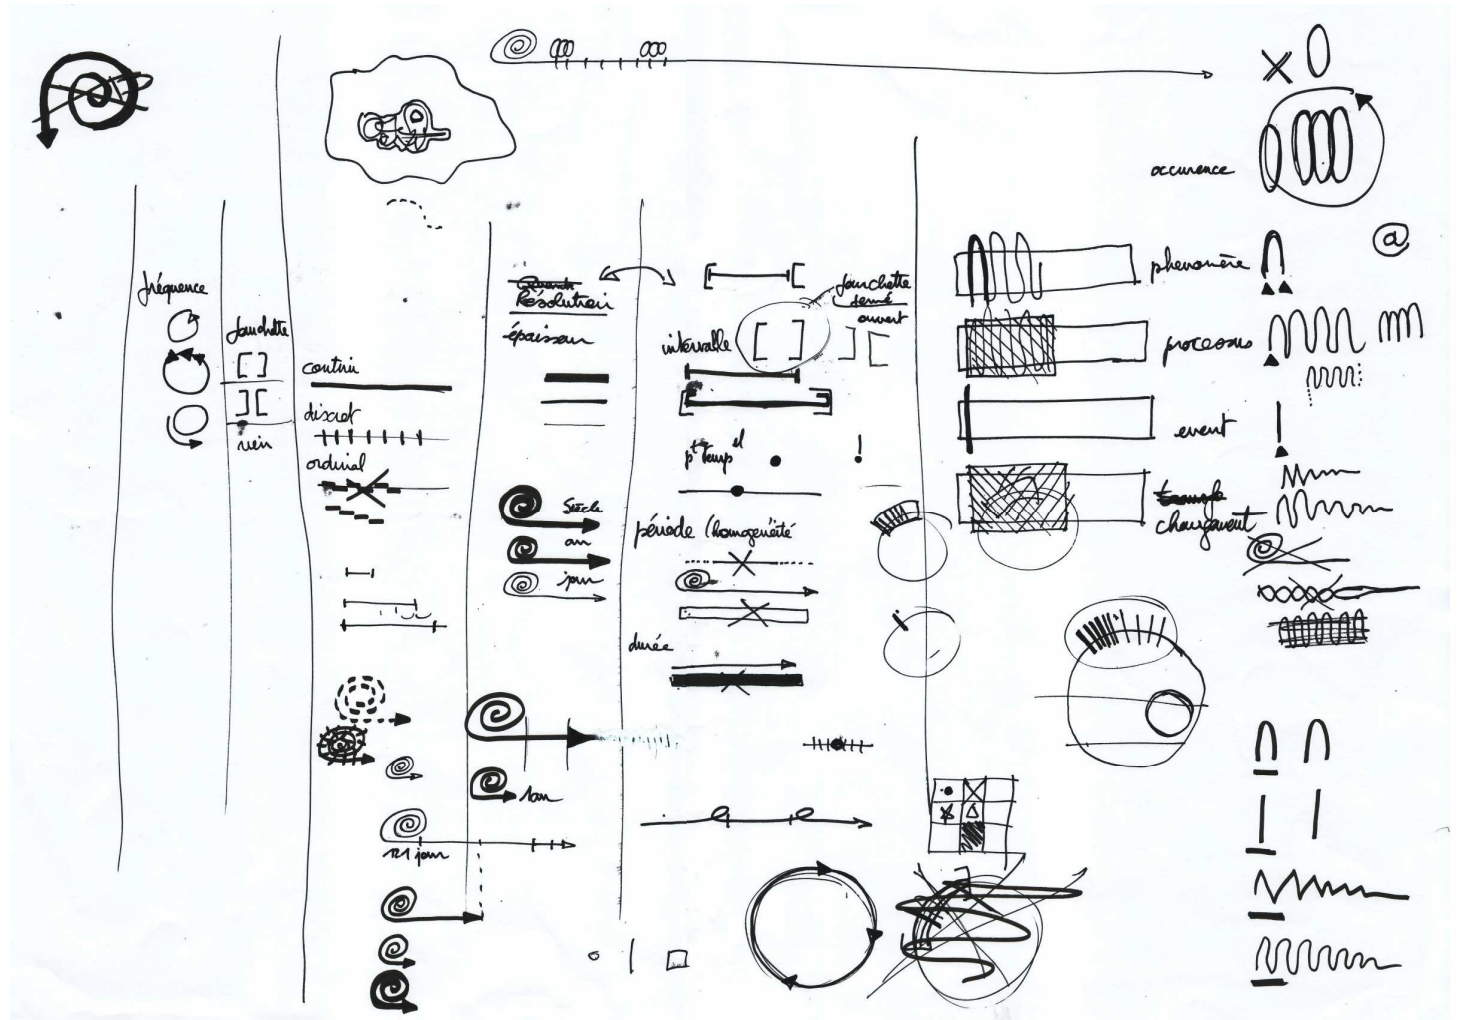 fréquence
fourchette
rien
continu
discret
ordinal
Résolution
épaisseur
Siècle
an
jour
1 an
121 jour
intervalle
fourchette
fermé
ouvert
période (homogénéité
durée
!
X
occurence
@
phenomène
processus
event
changement